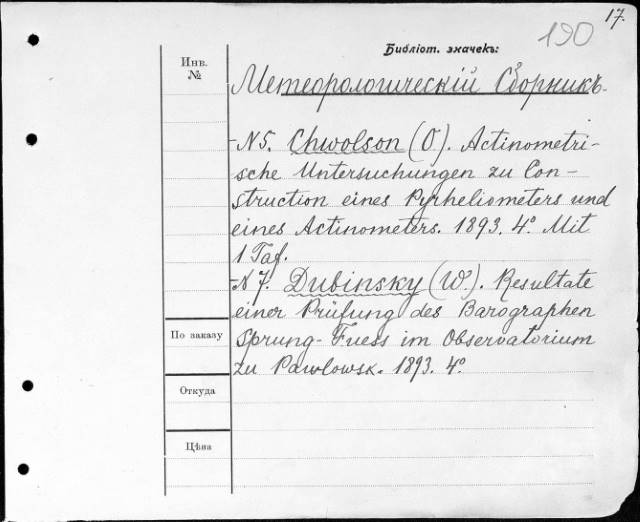 17.
190
Библіот. значекъ:
Инв.
№
Метеорологическій Сборникъ.
N 5. Chwolson (O.). Actinometri-
sche Untersuchungen zu Con-
struction eines Pyrheliometers und
eines Actinometers. 1893. 4º. Mit
1 Taf.
N 7. Dubinsky (W.). Resultate
einer Prüfung des Barographen
Sprung-Fuess im Observatorium
zu Pawlowsk. 1893. 4º.
По заказу
Откуда
Цѣна